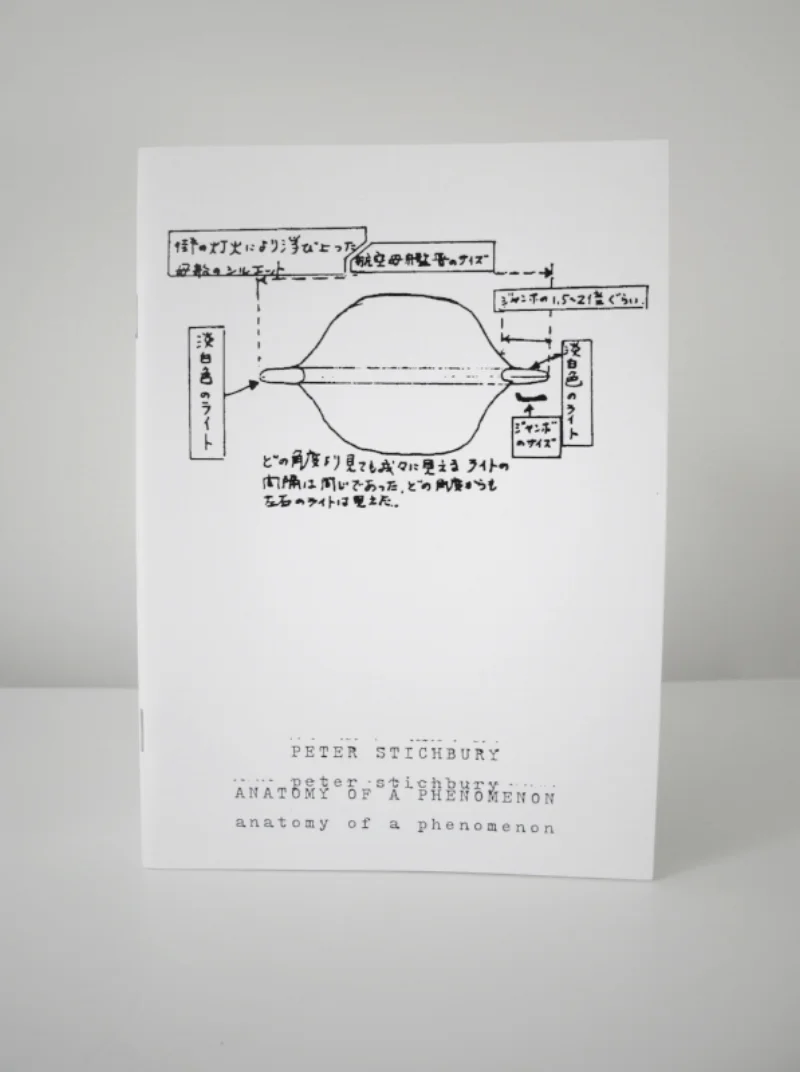 街の灯火により浮び上った
母船のシルエット
航空母艦二隻のサイズ
ジャンボの1.5~2倍ぐらい
淡白色のライト
淡白色のライト
ジャンボ
のサイズ
どの角度より見ても我々に見えるライトの
間隔は同じであった。どの角度からも
左右のライトは見えた。
PETER STICHBURY
peter stichbury
ANATOMY OF A PHENOMENON
anatomy of a phenomenon